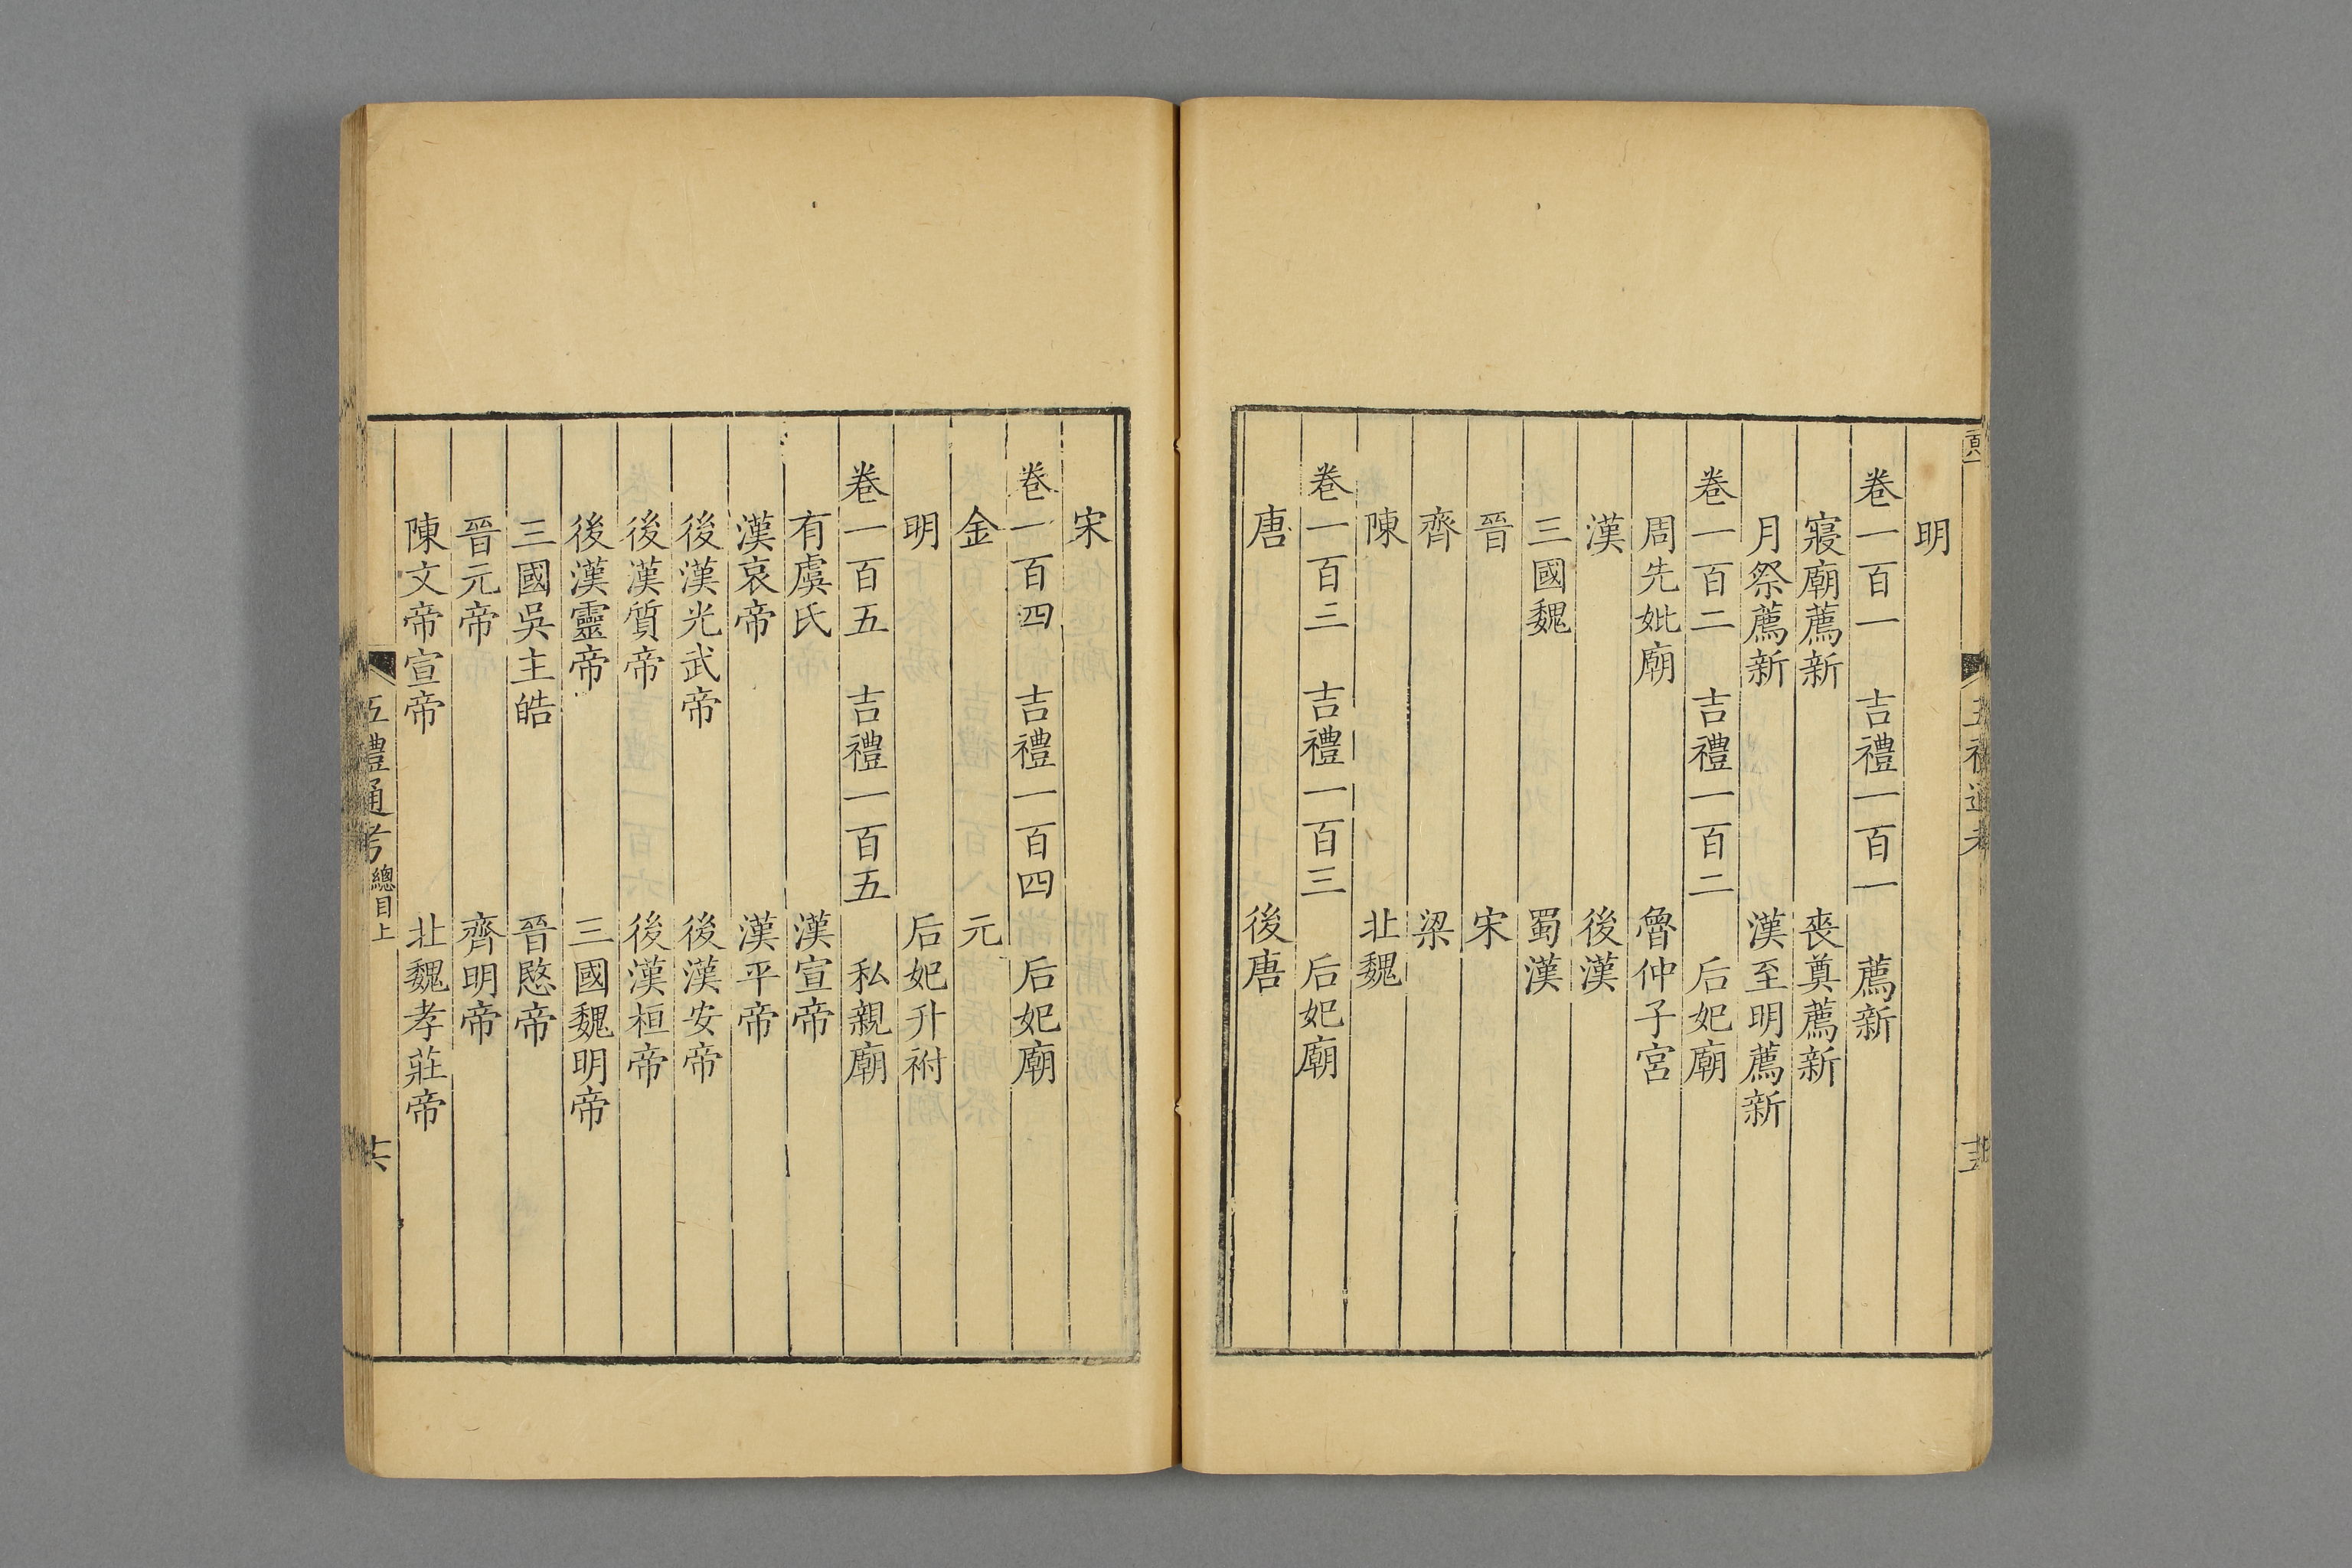 明
卷一百一　吉禮一百一　薦新
寢廟薦新　喪奠薦新
月祭薦新　漢至明薦新
卷一百二　吉禮一百二　后妃廟
周先妣廟　魯仲子宮
漢　後漢
三國魏　蜀漢
晉　宋
齊　梁
陳　北魏
卷一百三　吉禮一百三　后妃廟
唐　後唐
宋
卷一百四　吉禮一百四　后妃廟
金　元
明　后妃升祔
卷一百五　吉禮一百五　私親廟
有虞氏　漢宣帝
漢哀帝　漢平帝
後漢光武帝　後漢安帝
後漢質帝　後漢桓帝
後漢靈帝　三國魏明帝
三國吳主皓　晉愍帝
晉元帝　齊明帝
陳文帝宣帝　北魏孝莊帝
五禮通考總目上